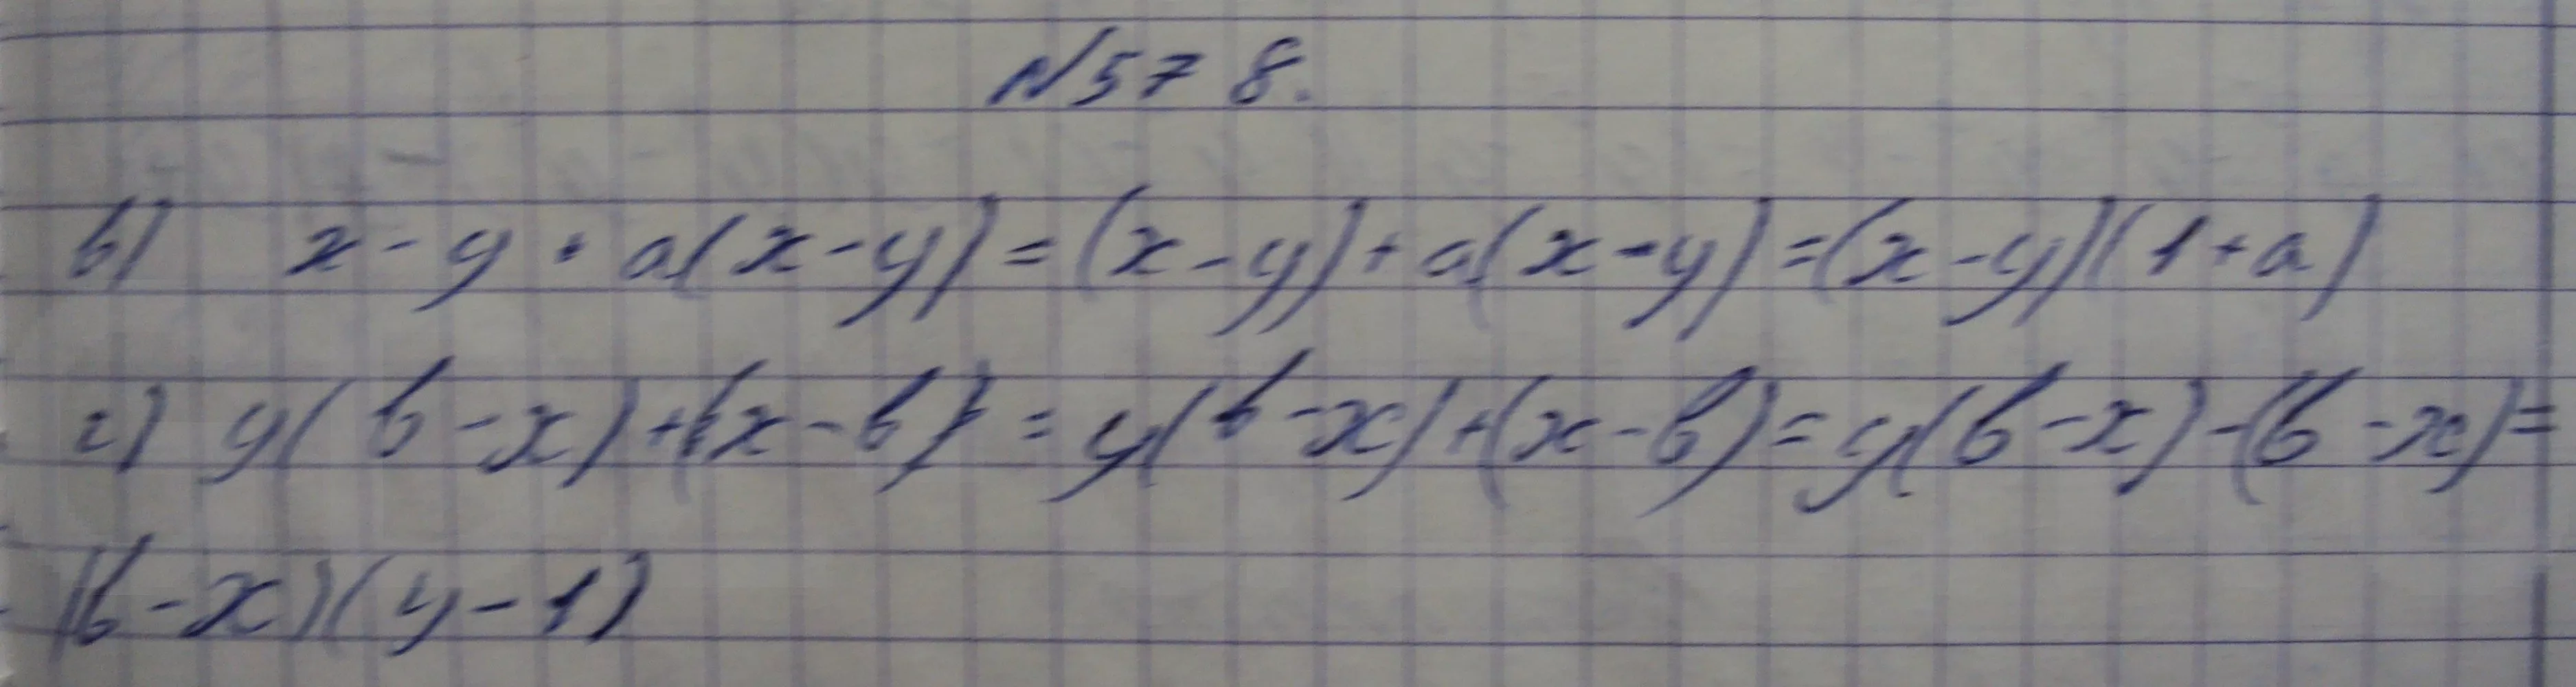 №578.
в) x - y + a(x - y) = (x - y) + a(x - y) = (x - y)(1 + a)
г) y(b - x) + (x - b) = y(b - x) + (x - b) = y(b - x) - (b - x) =
(b - x)(y - 1)